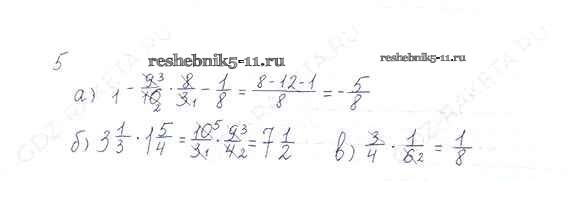 5
reshebnik5-11.ru
reshebnik5-11.ru
а) 1 - 9³/10₂ · 8/3₁ - 1/8 = (8-12-1)/8 = -5/8
б) 3 1/3 · 1 5/4 = 10⁵/3₁ · 9³/4₂ = 7 1/2 в) 3/4 · 1/6₂ = 1/8
GDZ-RAKETA.RU